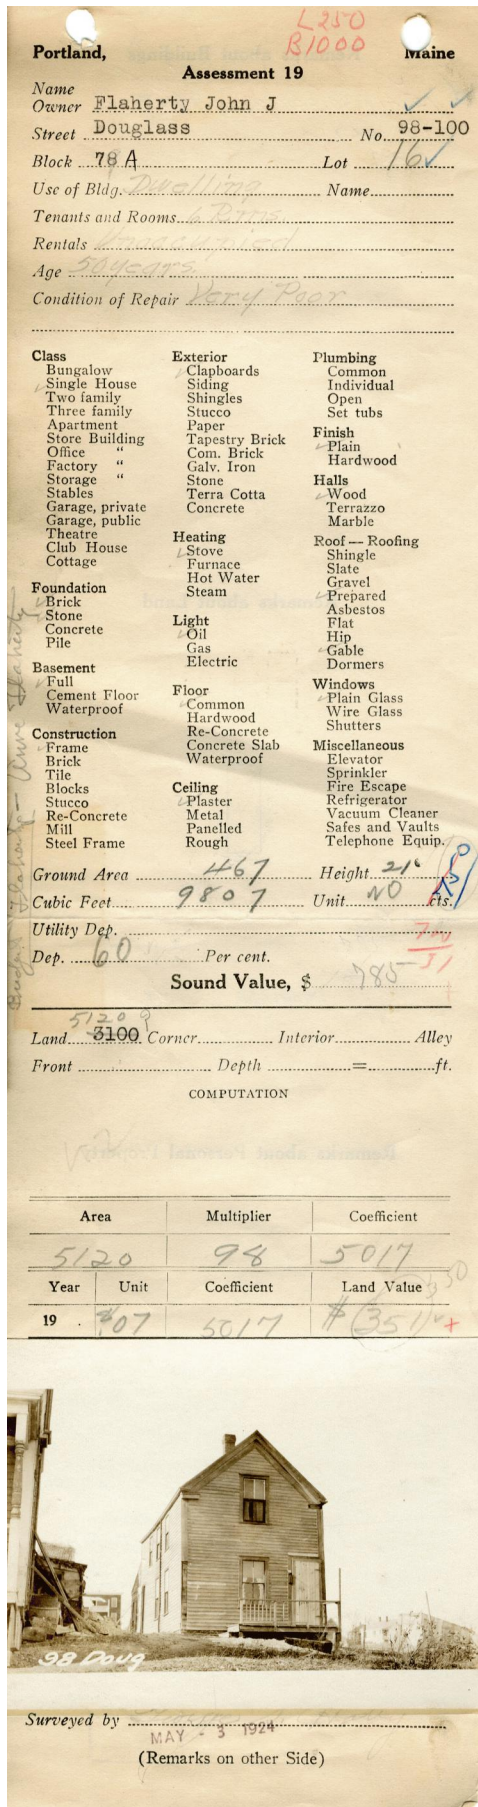 L 250
B 1000
Portland, Maine
Assessment 19
Name
Owner Flaherty John J
Street Douglass No. 98-100
Block 78 A Lot 16
Use of Bldg. Dwelling Name
Tenants and Rooms 6 Rms
Rentals Unoccupied
Age 50 years
Condition of Repair Very Poor
Class
Bungalow
Single House
Two family
Three family
Apartment
Store Building
Office "
Factory "
Storage "
Stables
Garage, private
Garage, public
Theatre
Club House
Cottage
Foundation
Brick
Stone
Concrete
Pile
Basement
Full
Cement Floor
Waterproof
Construction
Frame
Brick
Tile
Blocks
Stucco
Re-Concrete
Mill
Steel Frame
Exterior
Clapboards
Siding
Shingles
Stucco
Paper
Tapestry Brick
Com. Brick
Galv. Iron
Stone
Terra Cotta
Concrete
Heating
Stove
Furnace
Hot Water
Steam
Light
Oil
Gas
Electric
Floor
Common
Hardwood
Re-Concrete
Concrete Slab
Waterproof
Ceiling
Plaster
Metal
Panelled
Rough
Plumbing
Common
Individual
Open
Set tubs
Finish
Plain
Hardwood
Halls
Wood
Terrazzo
Marble
Roof — Roofing
Shingle
Slate
Gravel
Prepared
Asbestos
Flat
Hip
Gable
Dormers
Windows
Plain Glass
Wire Glass
Shutters
Miscellaneous
Elevator
Sprinkler
Fire Escape
Refrigerator
Vacuum Cleaner
Safes and Vaults
Telephone Equip.
Ground Area 467 Height 21'
Cubic Feet 9807 Unit NO cts.
Utility Dep.
Dep. 60 Per cent.
Sound Value, $ 785
5120
Land 3100 Corner Interior Alley
Front Depth = ft.
COMPUTATION
Area Multiplier Coefficient
5120 98 5017
Year Unit Coefficient Land Value
19 $.07 5017 $ 351
98 Doug
Surveyed by
MAY - 3 1924
(Remarks on other Side)